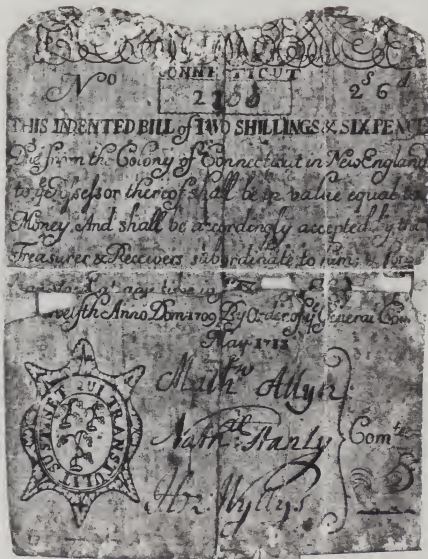 CONNECTICUT
No 2 s 6 d
THIS INDENTED BILL of TWO SHILLINGS & SIXPENCE
Due from the Colony of Connecticut in New England
to ye Possessor thereof shall be in value equal to
Money And shall be accordingly accepted by the
Treasurer & Receivers subordinate to him; &
any time
Twelfth Anno Dom 1709 By Order of ye General Cou
May 1713
Math:w Allyn
Nath:ll Stanly Com:tee
Hez Wyllys
SUSTINET QUI TRANSTULIT